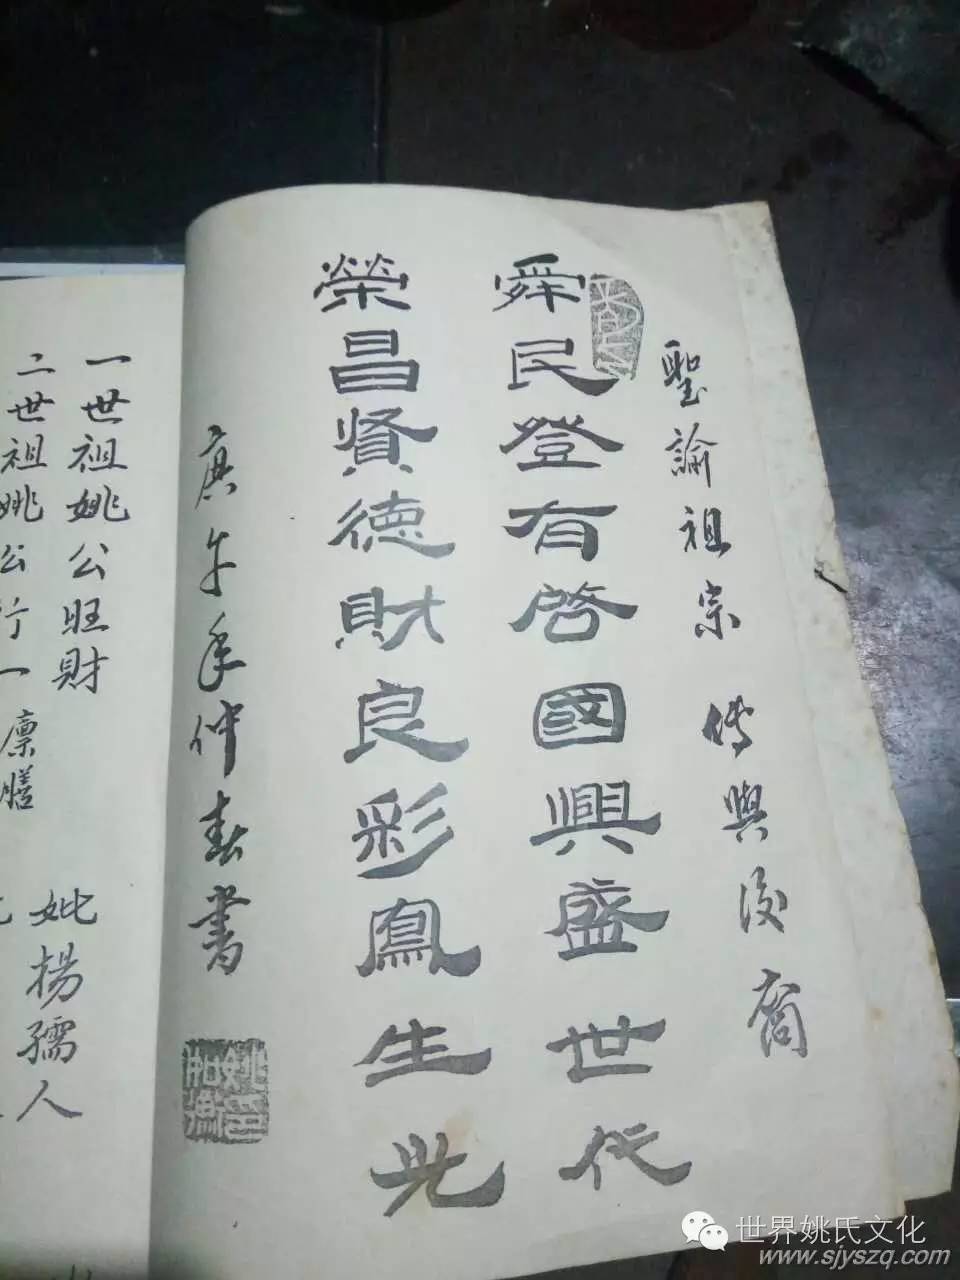 聖諭祖宗 传與後裔
舜民登有啓國興盛世代
榮昌賢德財良彩鳳生光
庚午年仲春書
一世祖姚公旺財
妣楊孺人
二世祖姚公行一 廪膳
世界姚氏文化
www.sjyszq.com